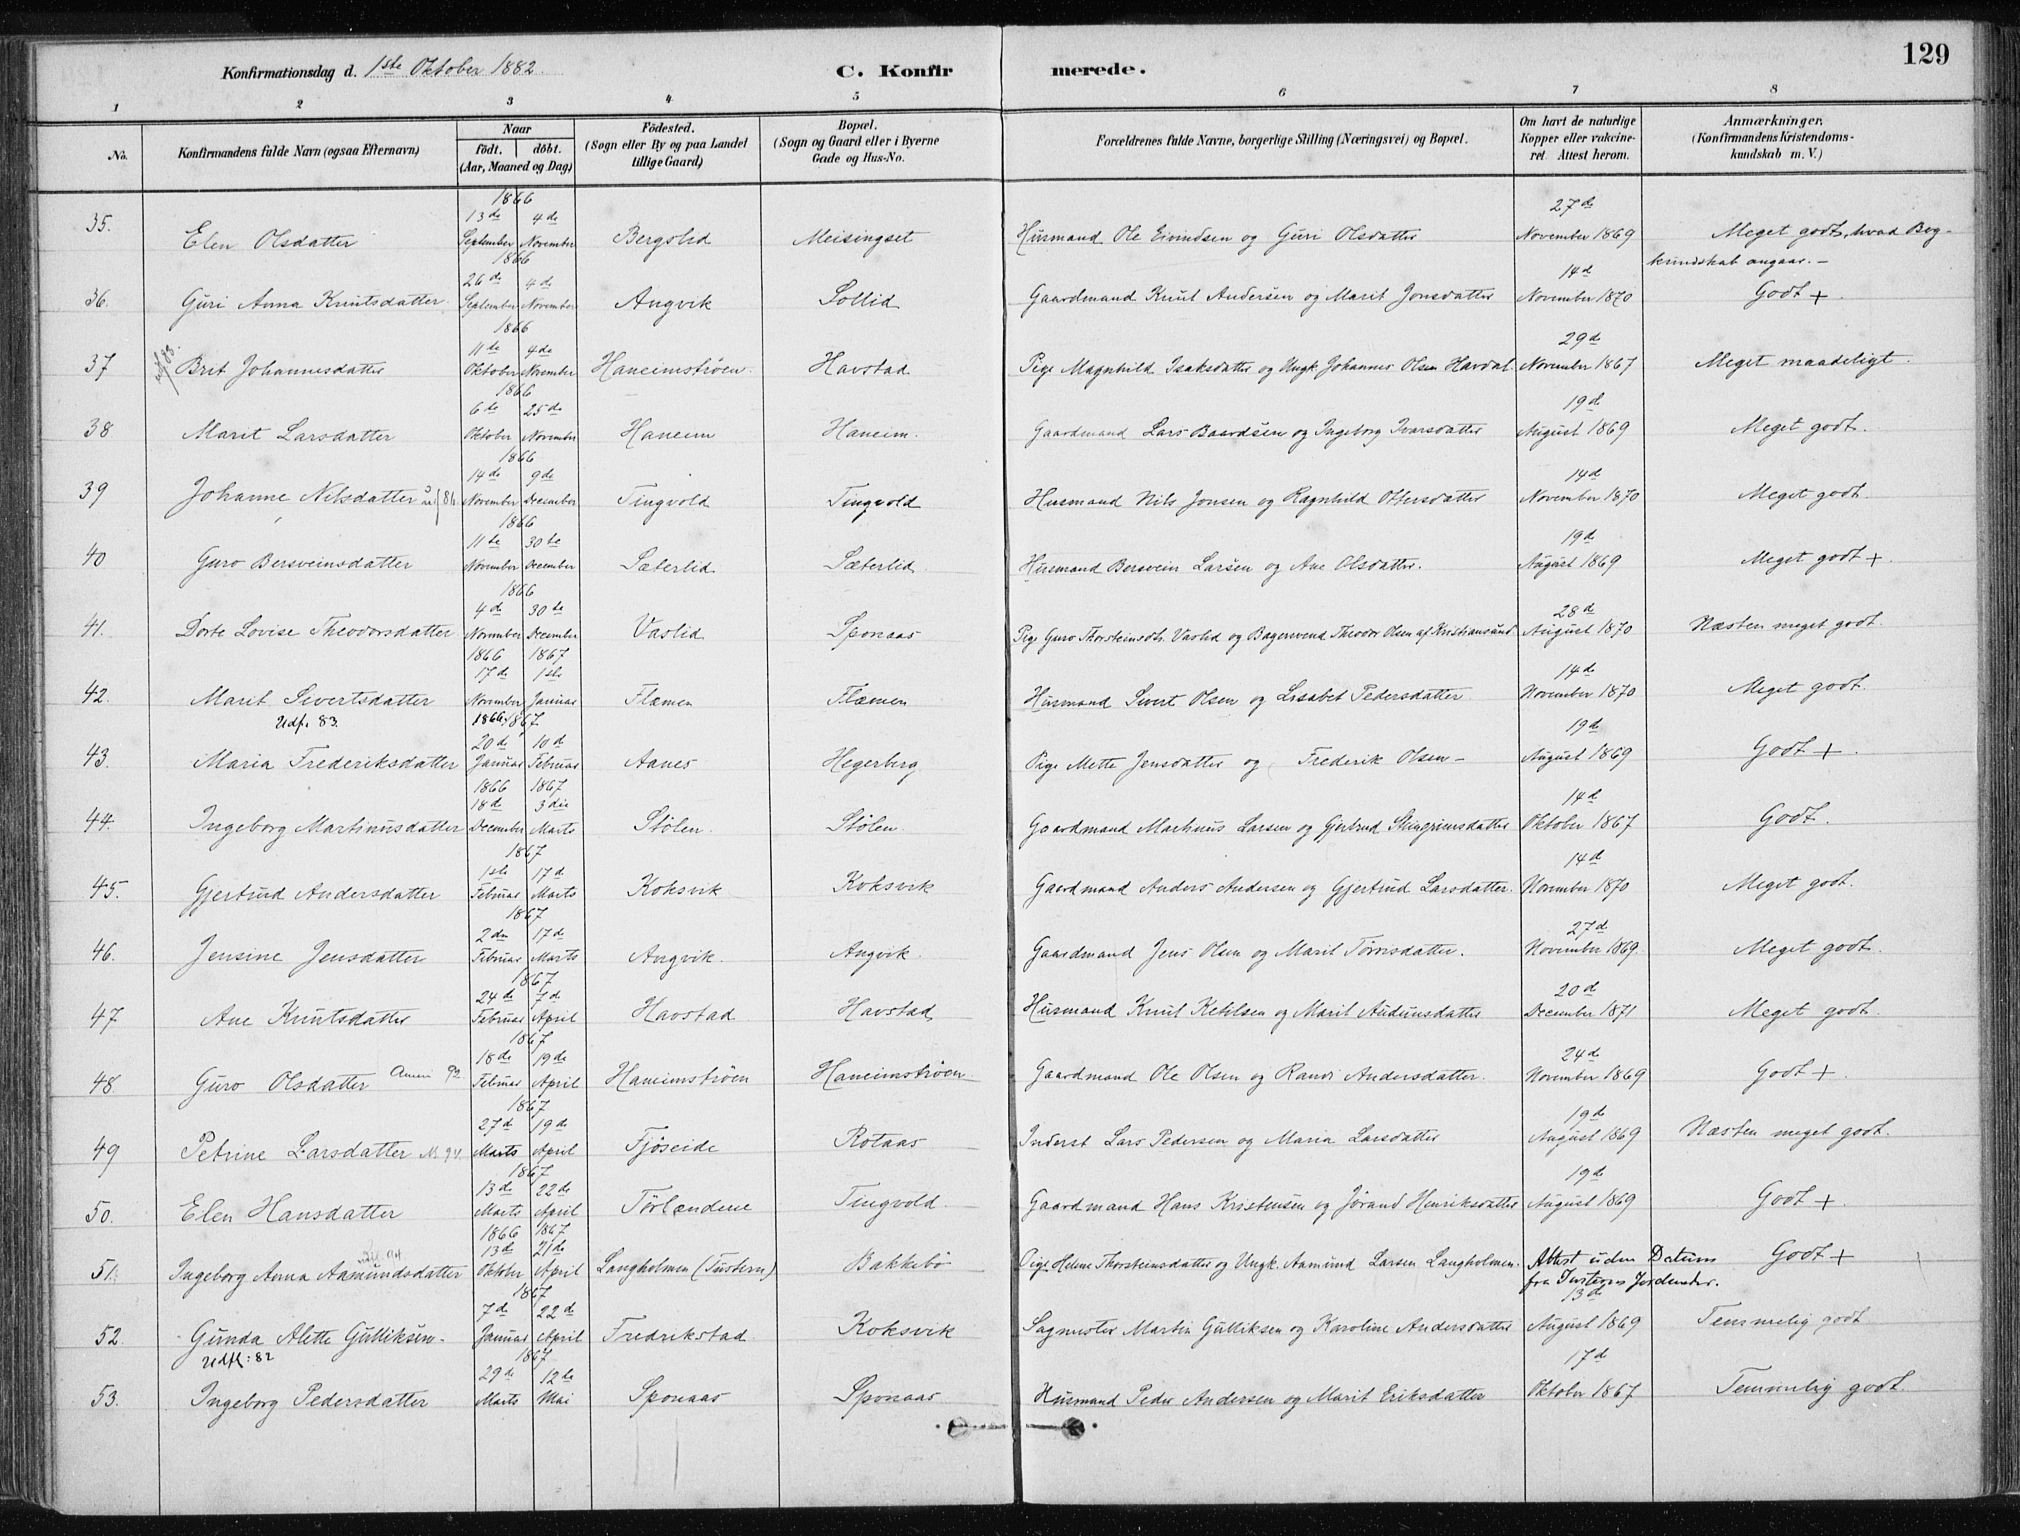 129
Konfirmationsdag d. 1ste Oktober 1882.
C. Konfirmerede.
1 2 3 4 5 6 7 8
No. | Konfirmandens fulde Navn (ogsaa Efternavn) | Naar født. døbt. (Aar, Maaned og Dag) | Fødested. (Sogn eller By og paa Landet tillige Gaard) | Bopæl. (Sogn og Gaard eller i Byerne Gade og Hus-No. | Forældrenes fulde Navne, borgerlige Stilling (Næringsvei) og Bopæl. | Om havt de naturlige Kopper eller vakcineret. Attest herom. | Anmærkninger. (Konfirmandens Kristendomskundskab m. V.)
35. | Elen Olsdatter | 1866 13de September 4de November | Bergslid | Meisingset | Husmand Ole Eivindsen og Guri Olsdatter | 27de November 1869 | Meget godt, hvad Bogkundskab angaar. –
36. | Guri Anna Knutsdatter | 1866 26de September 4de November | Angvik | Sollid | Gaardmand Knut Andersen og Marit Jonsdatter | 14d November 1870 | Godt +.
37 | Brit Johannesdatter | 1866 11te Oktober 4de November | Haneimstrøen | Havstad | Pige Magnhild Isaksdatter og Ungk. Johannes Olsen Havdal | 29d November 1867 | Meget maadeligt.
38 | Marit Larsdatter | 1866 6te Oktober 25de November | Haneim | Haneim. | Gaardmand Lars Baardsen og Ingeborg Ivarsdatter | 19d August 1869 | Meget godt.
39 | Johanne Nilsdatter | 1866 14de November 9de December | Tingvold | Tingvold | Husmand Nils Jonsen og Ragnhild Ottersdatter | 14d November 1870 | Meget godt
40 | Guro Bersveinsdatter | 1866 11te November 30te December | Sæterlid | Sæterlid. | Husmand Bersvein Larsen og Ane Olsdatter. | 19d August 1869 | Meget godt +.
41. | Dorte Lovise Theodorsdatter | 1866 4de November 30te December | Vaslid | Sponaas | Pige Guro Thorsteinsdtr. Vaslid og Bagersvend Theodor Olsen af Kristiansund | 28d August 1870 | Næsten meget godt.
42. | Marit Sivertsdatter Udfl. 83. | 1866 17de November 1867 1ste Januar | Flemen | Flemen | Husmand Sivert Olsen og Lisabet Pedersdatter | 14de November 1870 | Meget godt.
43. | Maria Frederiksdatter | 1866 1867 20de Januar 10d Februar | Aanes | Hegerberg | Pige Mette Jensdatter og Frederik Olsen – | 19d August 1869 | Godt +.
44. | Ingeborg Martinusdatter | 1866 18de December 1867 3die Marts | Stølen. | Stølen | Gaardmand Martinus Larsen og Gjertrud Steingrimsdatter | 14d Oktober 1867 | Godt.
45. | Gjertrud Andersdatter | 1867 1ste Februar 17d Marts | Koksvik | Koksvik | Gaardmand Anders Andersen og Gjertrud Larsdatter. | 14d November 1870 | Meget godt.
46. | Jensine Jensdatter | 1867 2den Februar 17de Marts | Angvik. | Angvik. | Gaardmand Jens Olsen og Marit Tørrisdatter. | 27d November 1869. | Meget godt.
47. | Ane Knutsdatter | 1867 24de Februar 7d April | Havstad. | Havstad | Husmand Knut Ketilsen og Marit Audunsdatter | 20d December 1871 | Meget godt.
48. | Guro Olsdatter | 1867 18de Februar 19de April | Haneimstrøen | Haneimstrøen | Gaardmand Ole Olsen og Randi Andersdatter. | 24d November 1869 | Godt +.
49 | Petrine Larsdatter | 1867 27d Marts 19de April | Fjøseide | Rotaas | Inderst Lars Pedersen og Maria Larsdatter | 19d August 1869 | Næsten meget godt.
50. | Elen Hansdatter | 1867 13de Marts 22de April | Tørlændene | Tingvold. | Gaardmand Hans Kristensen og Jørand Henriksdatter | 19d August 1869 | Godt +
51. | Ingeborg Anna Aasmundsdatter | 1866 13d Oktober 1867 21de April | Langholmen (Tustern) | Bakkebø | Pige Helene Thorsteinsdatter og Ungk. Aamund Larsen Langholmen. | Attest uden Datum fra Tusterns Jordemder. | Godt +
52. | Gunda Alette Gulliksen. Udfl: 82 | 1867 7d Januar 22de April | Fredrikstad | Koksvik | Sagmester Martin Gulliksen og Karoline Andersdatter | 13d August 1869 | Temmelig godt
53. | Ingeborg Pedersdatter | 1867 29de Marts 12te Mai | Sponaas | Sponaas | Husmand Peder Andersen og Marit Eriksdatter | 17d Oktober 1867 | Temmelig godt.